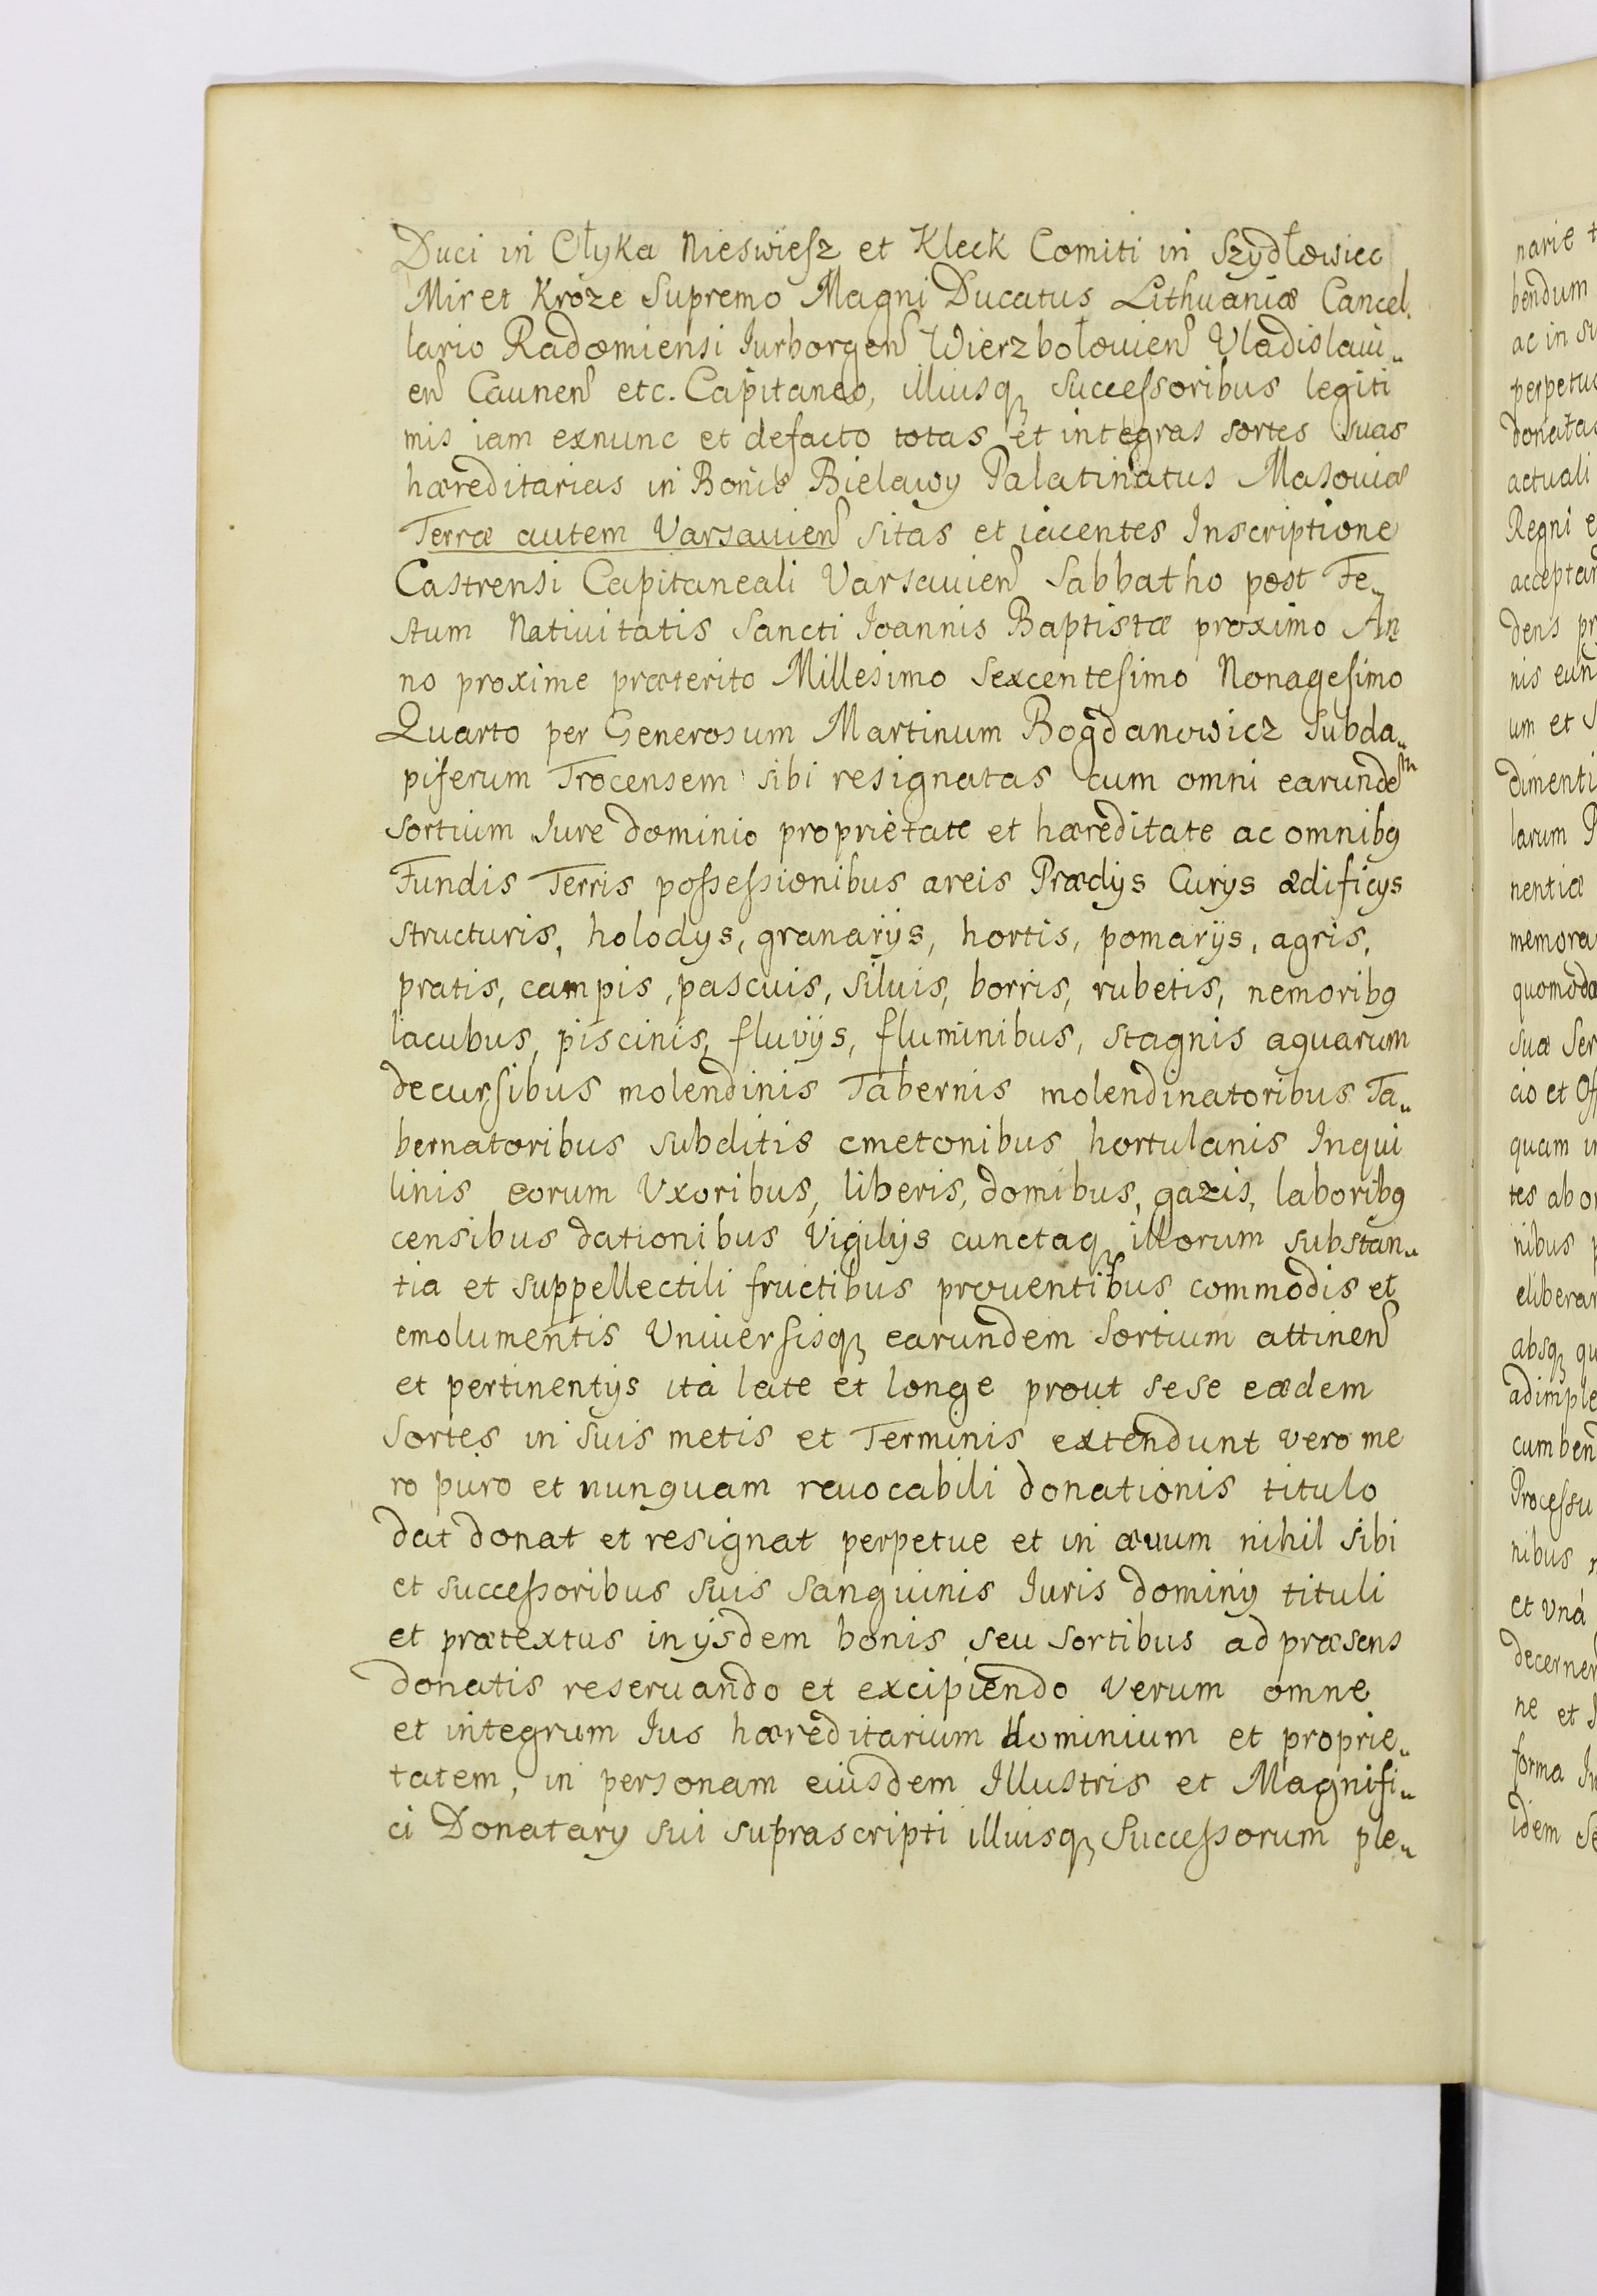 Duci in Ołyka Nieswiesz et Kleck Comiti in Szydłowiec
Mir et Kroze Supremo Magni Ducatus Lithuaniæ Cancel,
lario Radomiensi Iurborgen Wierzbołowien Vladislaui„
en Caunen etc. Capitaneo, illiusq successoribus legiti
mis iam exnunc et defacto totas et integras sortes suas
hæreditarias in Bonis Bielawy Palatinatus Masouiæ
Terræ autem Varsauien sitas et iacentes Inscriptione
Castrensi Capitaneali Varsauien Sabbatho post Fe„
stum Natiuitatis Sancti Ioannis Baptistæ proximo An
no proxime præterito Millesimo Sexcentesimo Nonagesimo
Quarto per Generosum Martinum Bogdanowicz Subda„
piferum Trocensem sibi resignatas cum omni earundem
sortium Iure dominio proprietate et hæreditate ac omnibq
Fundis Terris possessionibus areis Prædijs Curijs ædificijs
structuris, holodijs, granarijs, hortis, pomarijs, agris,
pratis, campis, pascuis, siluis, borris, rubetis, nemoribq
lacubus, piscinis, fluvijs, fluminibus, stagnis aquarum
decursibus molendinis Tabernis molendinatoribus Ta„
bernatoribus subditis cmetonibus hortulanis Inqui
linis eorum Vxoribus, liberis, domibus, gazis, laboribq
censibus dationibus Vigilijs cunctaq illorum substan„
tia et suppellectili fructibus prouentibus commodis et
emolumentis Vniuersisq earundem sortium attinen
et pertinentijs ità late et longe prout sese eædem
Sortes in suis metis et Terminis extendunt vero me
ro puro et nunquam reuocabili donationis titulo
dat donat et resignat perpetue et in æuum nihil sibi
et successoribus suis sanguinis Iuris dominij tituli
et prætextus in ijsdem bonis seu sortibus ad præsens
donatis reseruando et excipiendo Verum omne
et integrum Ius hæreditarium dominium et proprie„
tatem, in personam eiusdem Illustris et Magnifi„
ci Donatarij sui suprascripti illiusq Successorum ple„
narie
bendum
ac in
perpetuo
actuali
Regni
dens
nis
um et
larum
nentiæ
quomodo
suæ
cio et
quam
tes ab
nibus
absq
cumben
nibus
et Vnà
ne et
forma
idem